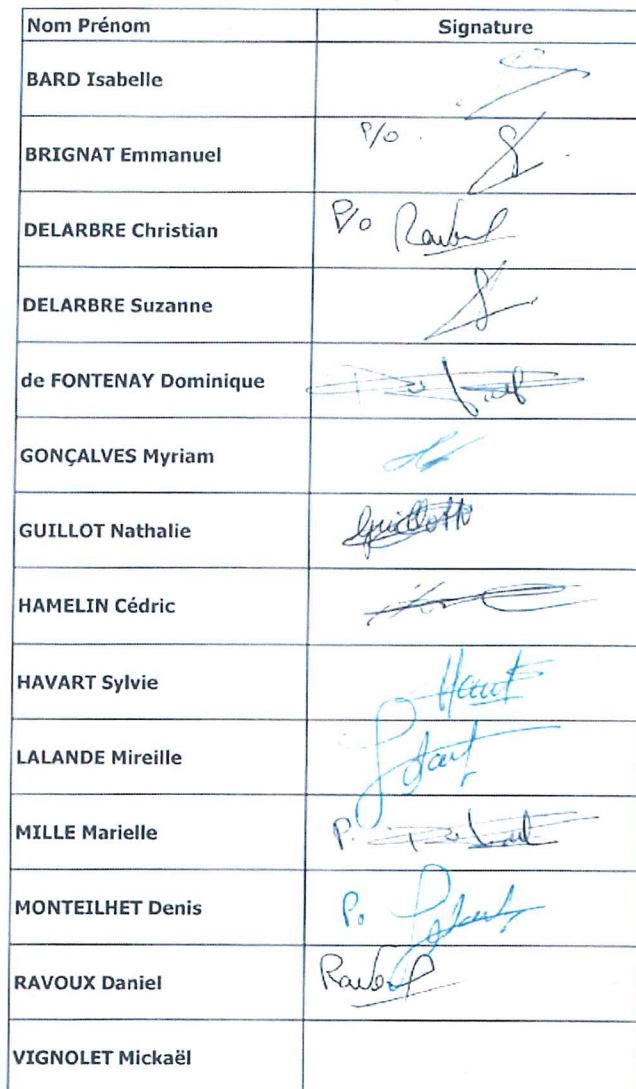 Nom Prénom Signature
BARD Isabelle
BRIGNAT Emmanuel P/o
DELARBRE Christian P/o
DELARBRE Suzanne
de FONTENAY Dominique
GONÇALVES Myriam
GUILLOT Nathalie
HAMELIN Cédric
HAVART Sylvie
LALANDE Mireille
MILLE Marielle P.
MONTEILHET Denis P.
RAVOUX Daniel
VIGNOLET Mickaël